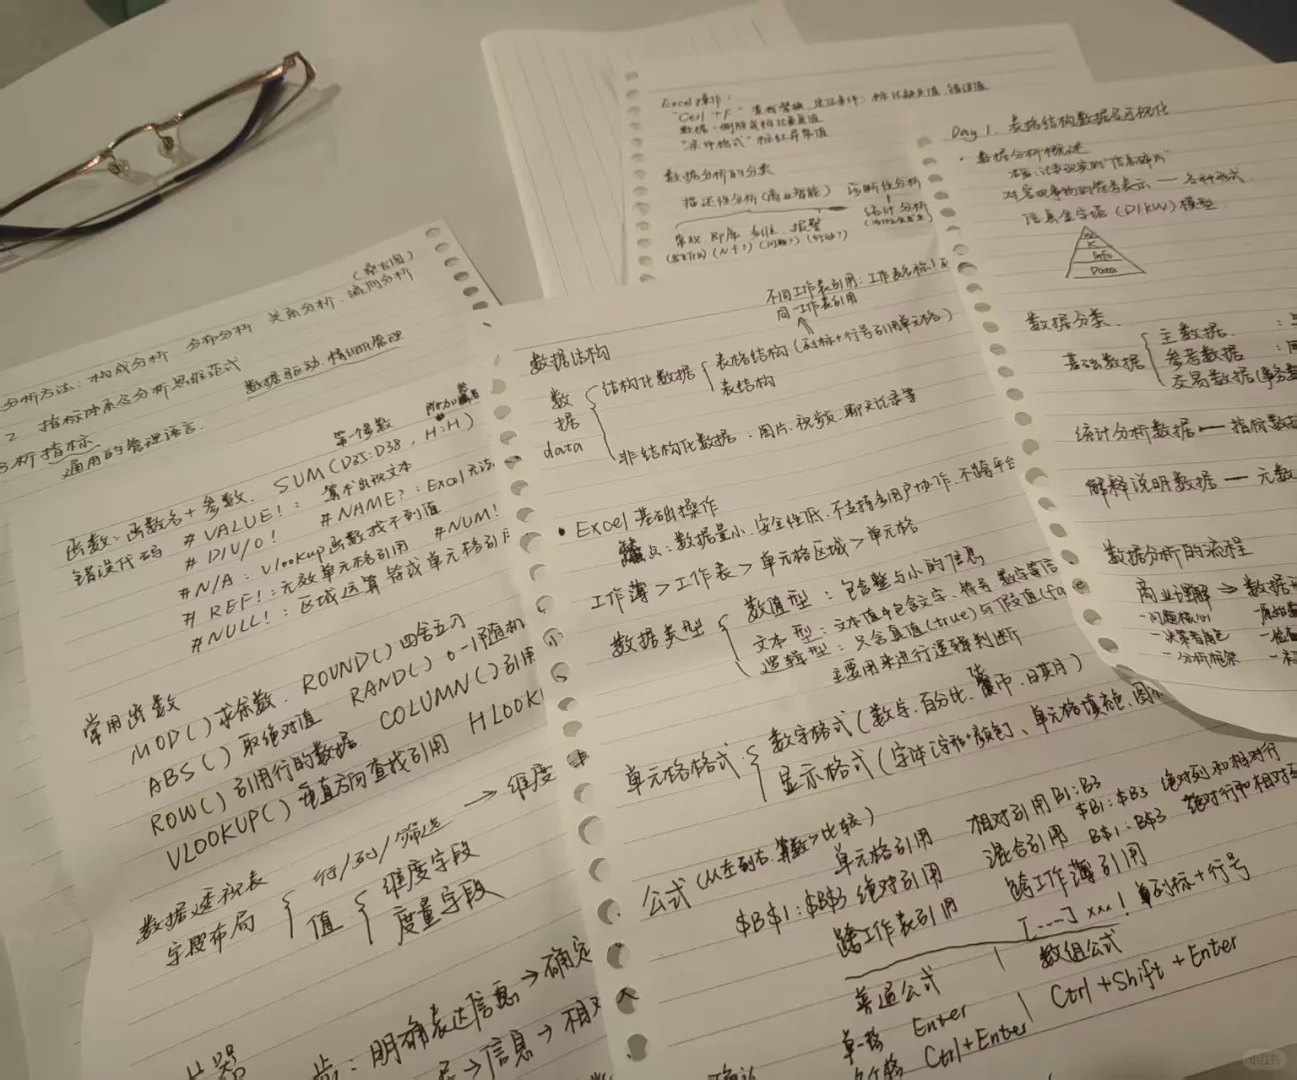 Excel操作：
"Ctrl+F" 查找替换
数据-删除
"条件格式" 标红异常值
数据分析的分类
描述性分析(商业智能) 诊断性分析
统计分析
Day 1. 表格结构数据
数据分析概述
对客观事物的符号表示 — 各种形式
信息金字塔(DIKW)模型
K
Info
Data
数据分类
基础数据
主数据 ：
参考数据 ：
交易数据(事务数
统计分析数据 — 指标数
解释说明数据 — 元数
数据分析的流程
商业理解 → 数据
-问题核心
-决策者角色
-分析框架
(桑吉图)
分析方法：构成分析 分布分析 关系分析、流向分析
2 指标体系及分析思维范式
分析指标 数据驱动、精细化管理
通用的管理语言.
第一个参数
函数=函数名+参数、SUM(D25:D38, H:H)
错误代码 #VALUE!：算术出现文本
#DIV/0! #NAME?：Excel无法
#N/A：Vlookup函数找不到值
#REF!：无效单元格引用 #NUM!
#NULL!：区域运算符或单元格引用
常用函数
MOD()求余数、ROUND()四舍五入
ABS()取绝对值 RAND() 0-1随机
ROW()引用行的数据 COLUMN()引用
VLOOKUP()垂直方向查找引用 HLOOK
数据透视表
字段布局
行/列/筛选 → 维度
值
维度字段
度量字段
：明确表达信息→确定
→信息→相
不同工作表引用：工作表名称!
同一工作表引用
数据结构
数据
data
结构化数据
表格结构(列标+行号引用单元格)
表结构
非结构化数据：图片、视频、聊天记录等
• Excel基础操作
缺点：数据量小、安全性低、不支持多用户协作、不跨平台
工作簿>工作表>单元格区域>单元格
数据类型
数值型：包含整与小的信息
文本型：文本值中包含文字、符号、数字等信
逻辑型：只含真值(true)与假值(fa
主要用来进行逻辑判断
单元格格式
数字格式(数字、百分比、货币、日期)
显示格式(字体(字形、颜色)、单元格填充、图
公式(从左到右、算数>比较)
单元格引用 相对引用 B1:B3
$B$1:$B$3 绝对引用 混合引用 $B1:$B3 绝对列和相对行
B$1:B$3 绝对行和相对
跨工作表引用 跨工作簿引用
[----]xxx!单列标+行号
普通公式 数组公式
单格 Enter Ctrl+Shift+Enter
Ctrl+Enter
小红书